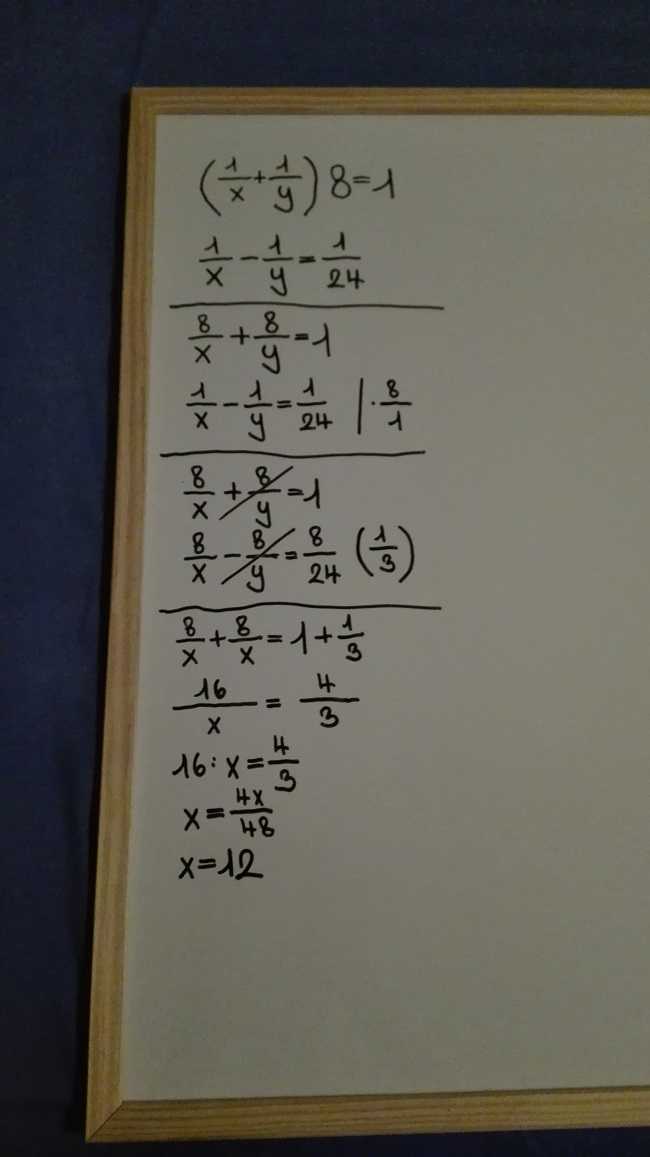 (1/x + 1/y) 8=1
1/x - 1/y = 1/24
8/x + 8/y = 1
1/x - 1/y = 1/24 | · 8/1
8/x + 8/y = 1
8/x - 8/y = 8/24 (1/3)
8/x + 8/x = 1 + 1/3
16/x = 4/3
16 : x = 4/3
x = 4x/48
x = 12